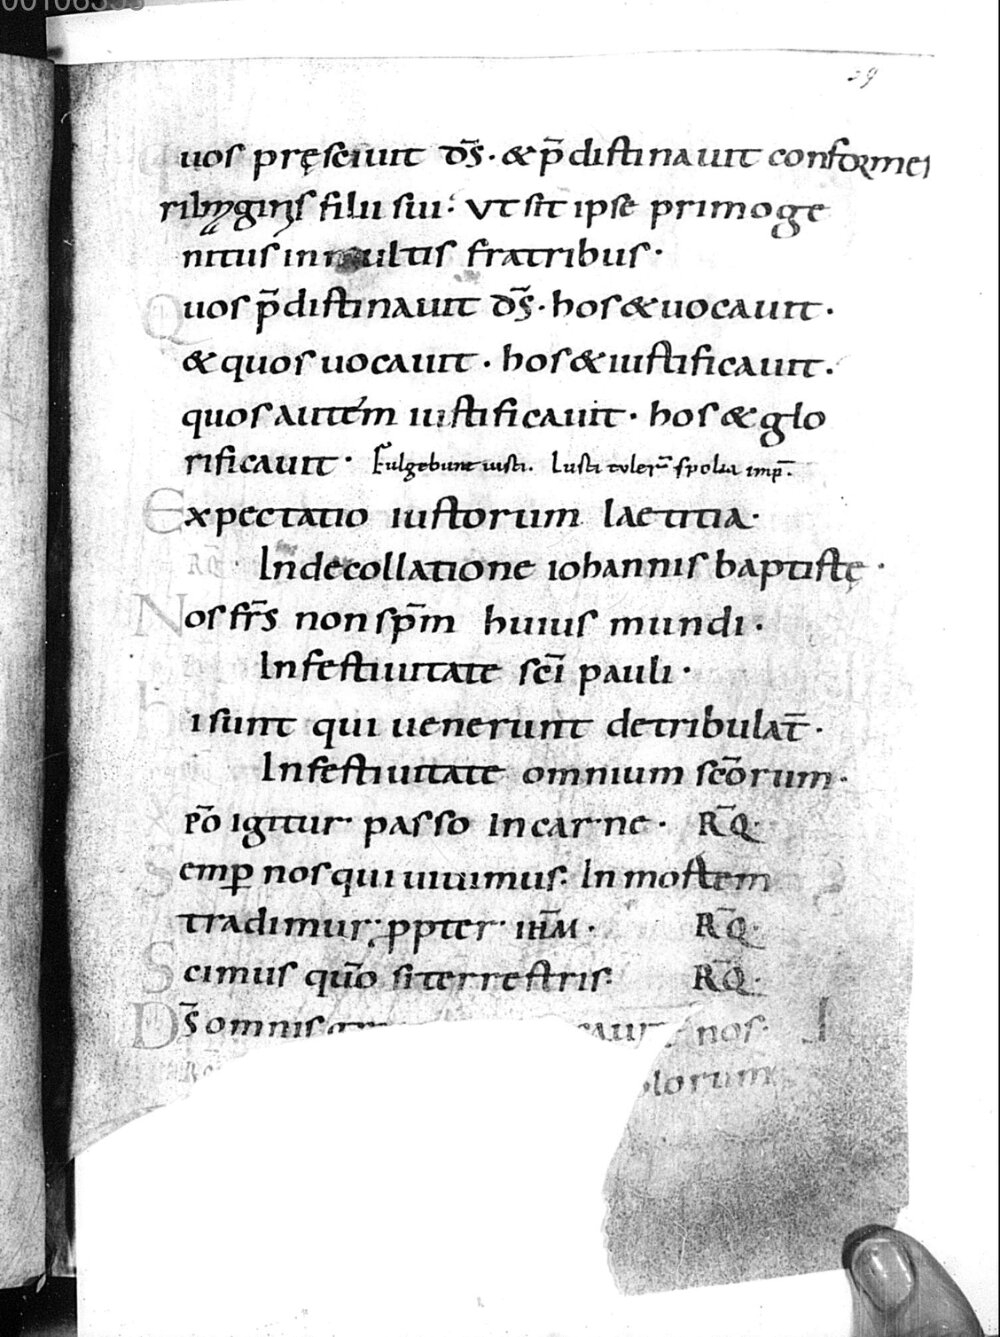 29
Quos pręsciuit d̄s · & p̄distinauit conformes
fieri imaginis filii sui : vt sit ipse primoge
nitus in multis fratribus ·
Quos p̄distinauit d̄s · hos & uocauit ·
& quos uocauit · hos & iustificauit ·
quos autém iustificauit · hos & glo
rificauit · Fulgebunt iusti. Iusti tuler̄ spolia imp̄.
Expectatio iustorum laetitia ·
R̄Q · In decollatione iohannis baptistę ·
Nos fr̄s non sp̄m huius mundi ·
In festiuitate sc̄i pauli ·
hi sunt qui uenerunt de tribulat̄ ·
In festiuitate omnium sc̄orum ·
xp̄o igitur passo in carne · R̄Q ·
Semp nos qui uiuimus · In mortem
tradimur · ppter ih̄m · R̄Q ·
Scimus qūo si terrestris · R̄Q ·
D̄s omnis nos ·